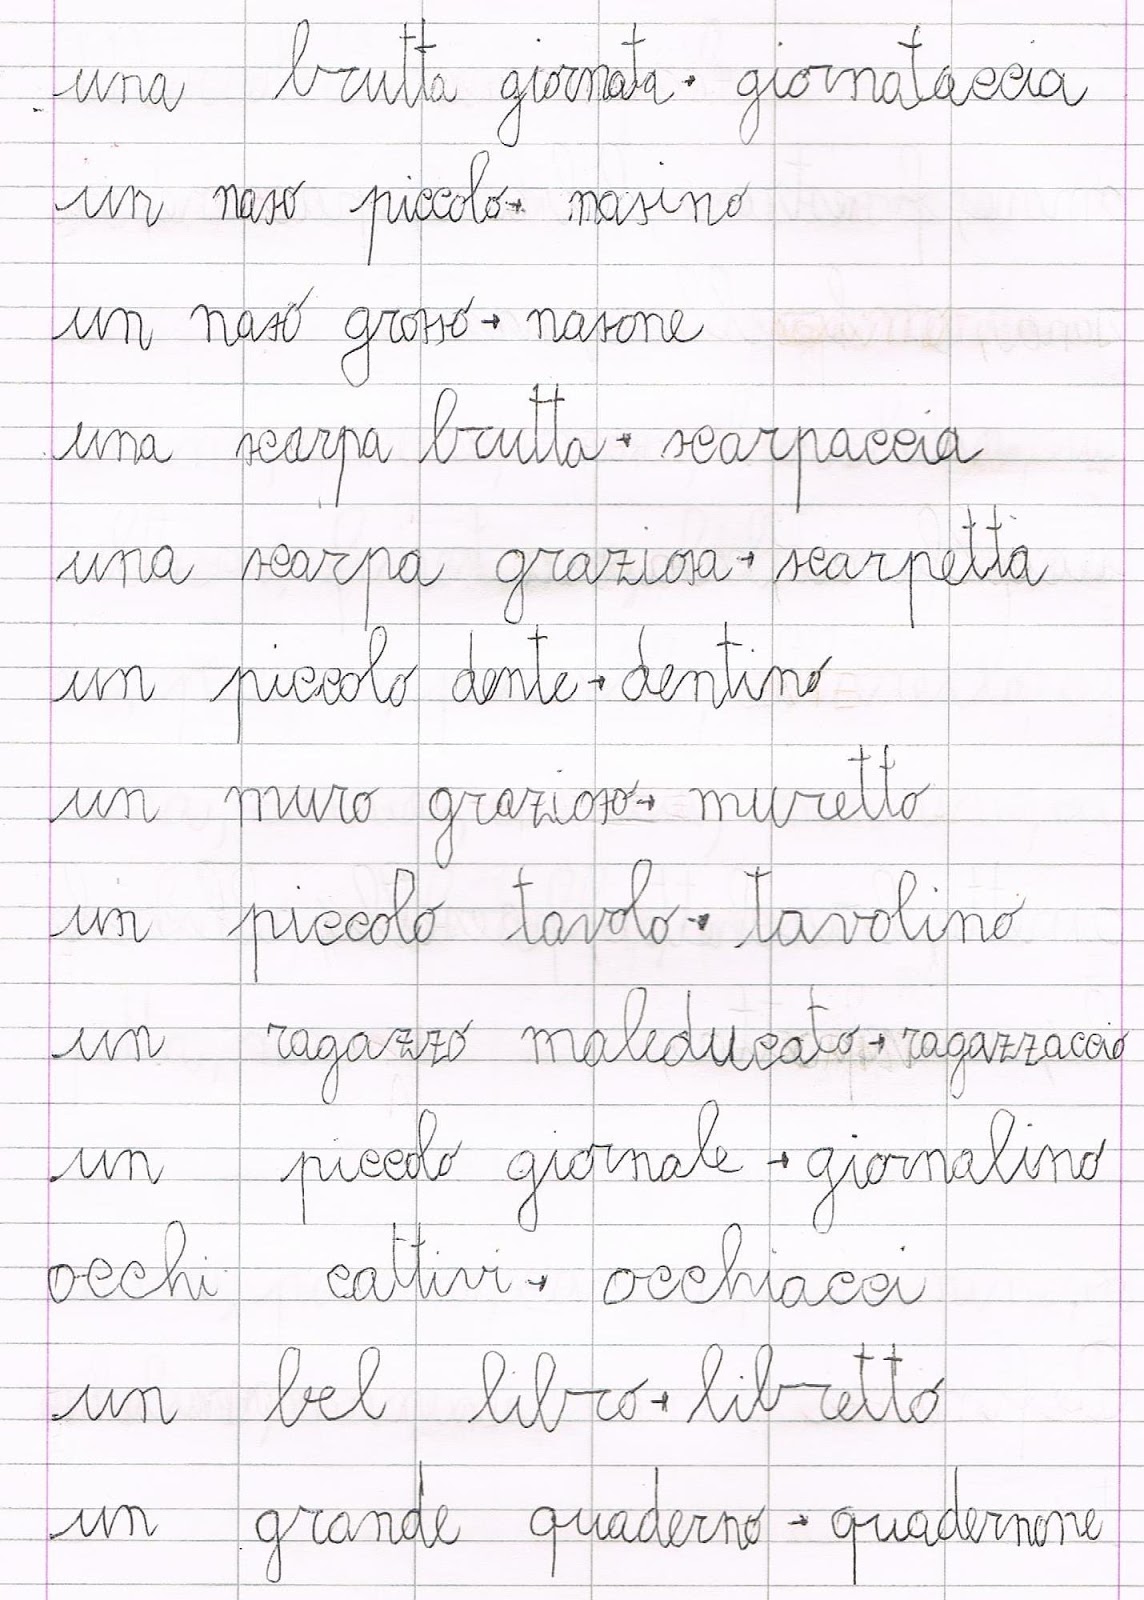 una brutta giornata → giornataccia
un naso piccolo → nasino
un naso grosso → nasone
una scarpa brutta → scarpaccia
una scarpa graziosa → scarpetta
un piccolo dente → dentino
un muro grazioso → muretto
un piccolo tavolo → tavolino
un ragazzo maleducato → ragazzaccio
un piccolo giornale → giornalino
occhi cattivi → occhiacci
un bel libro → libretto
un grande quaderno → quadernone